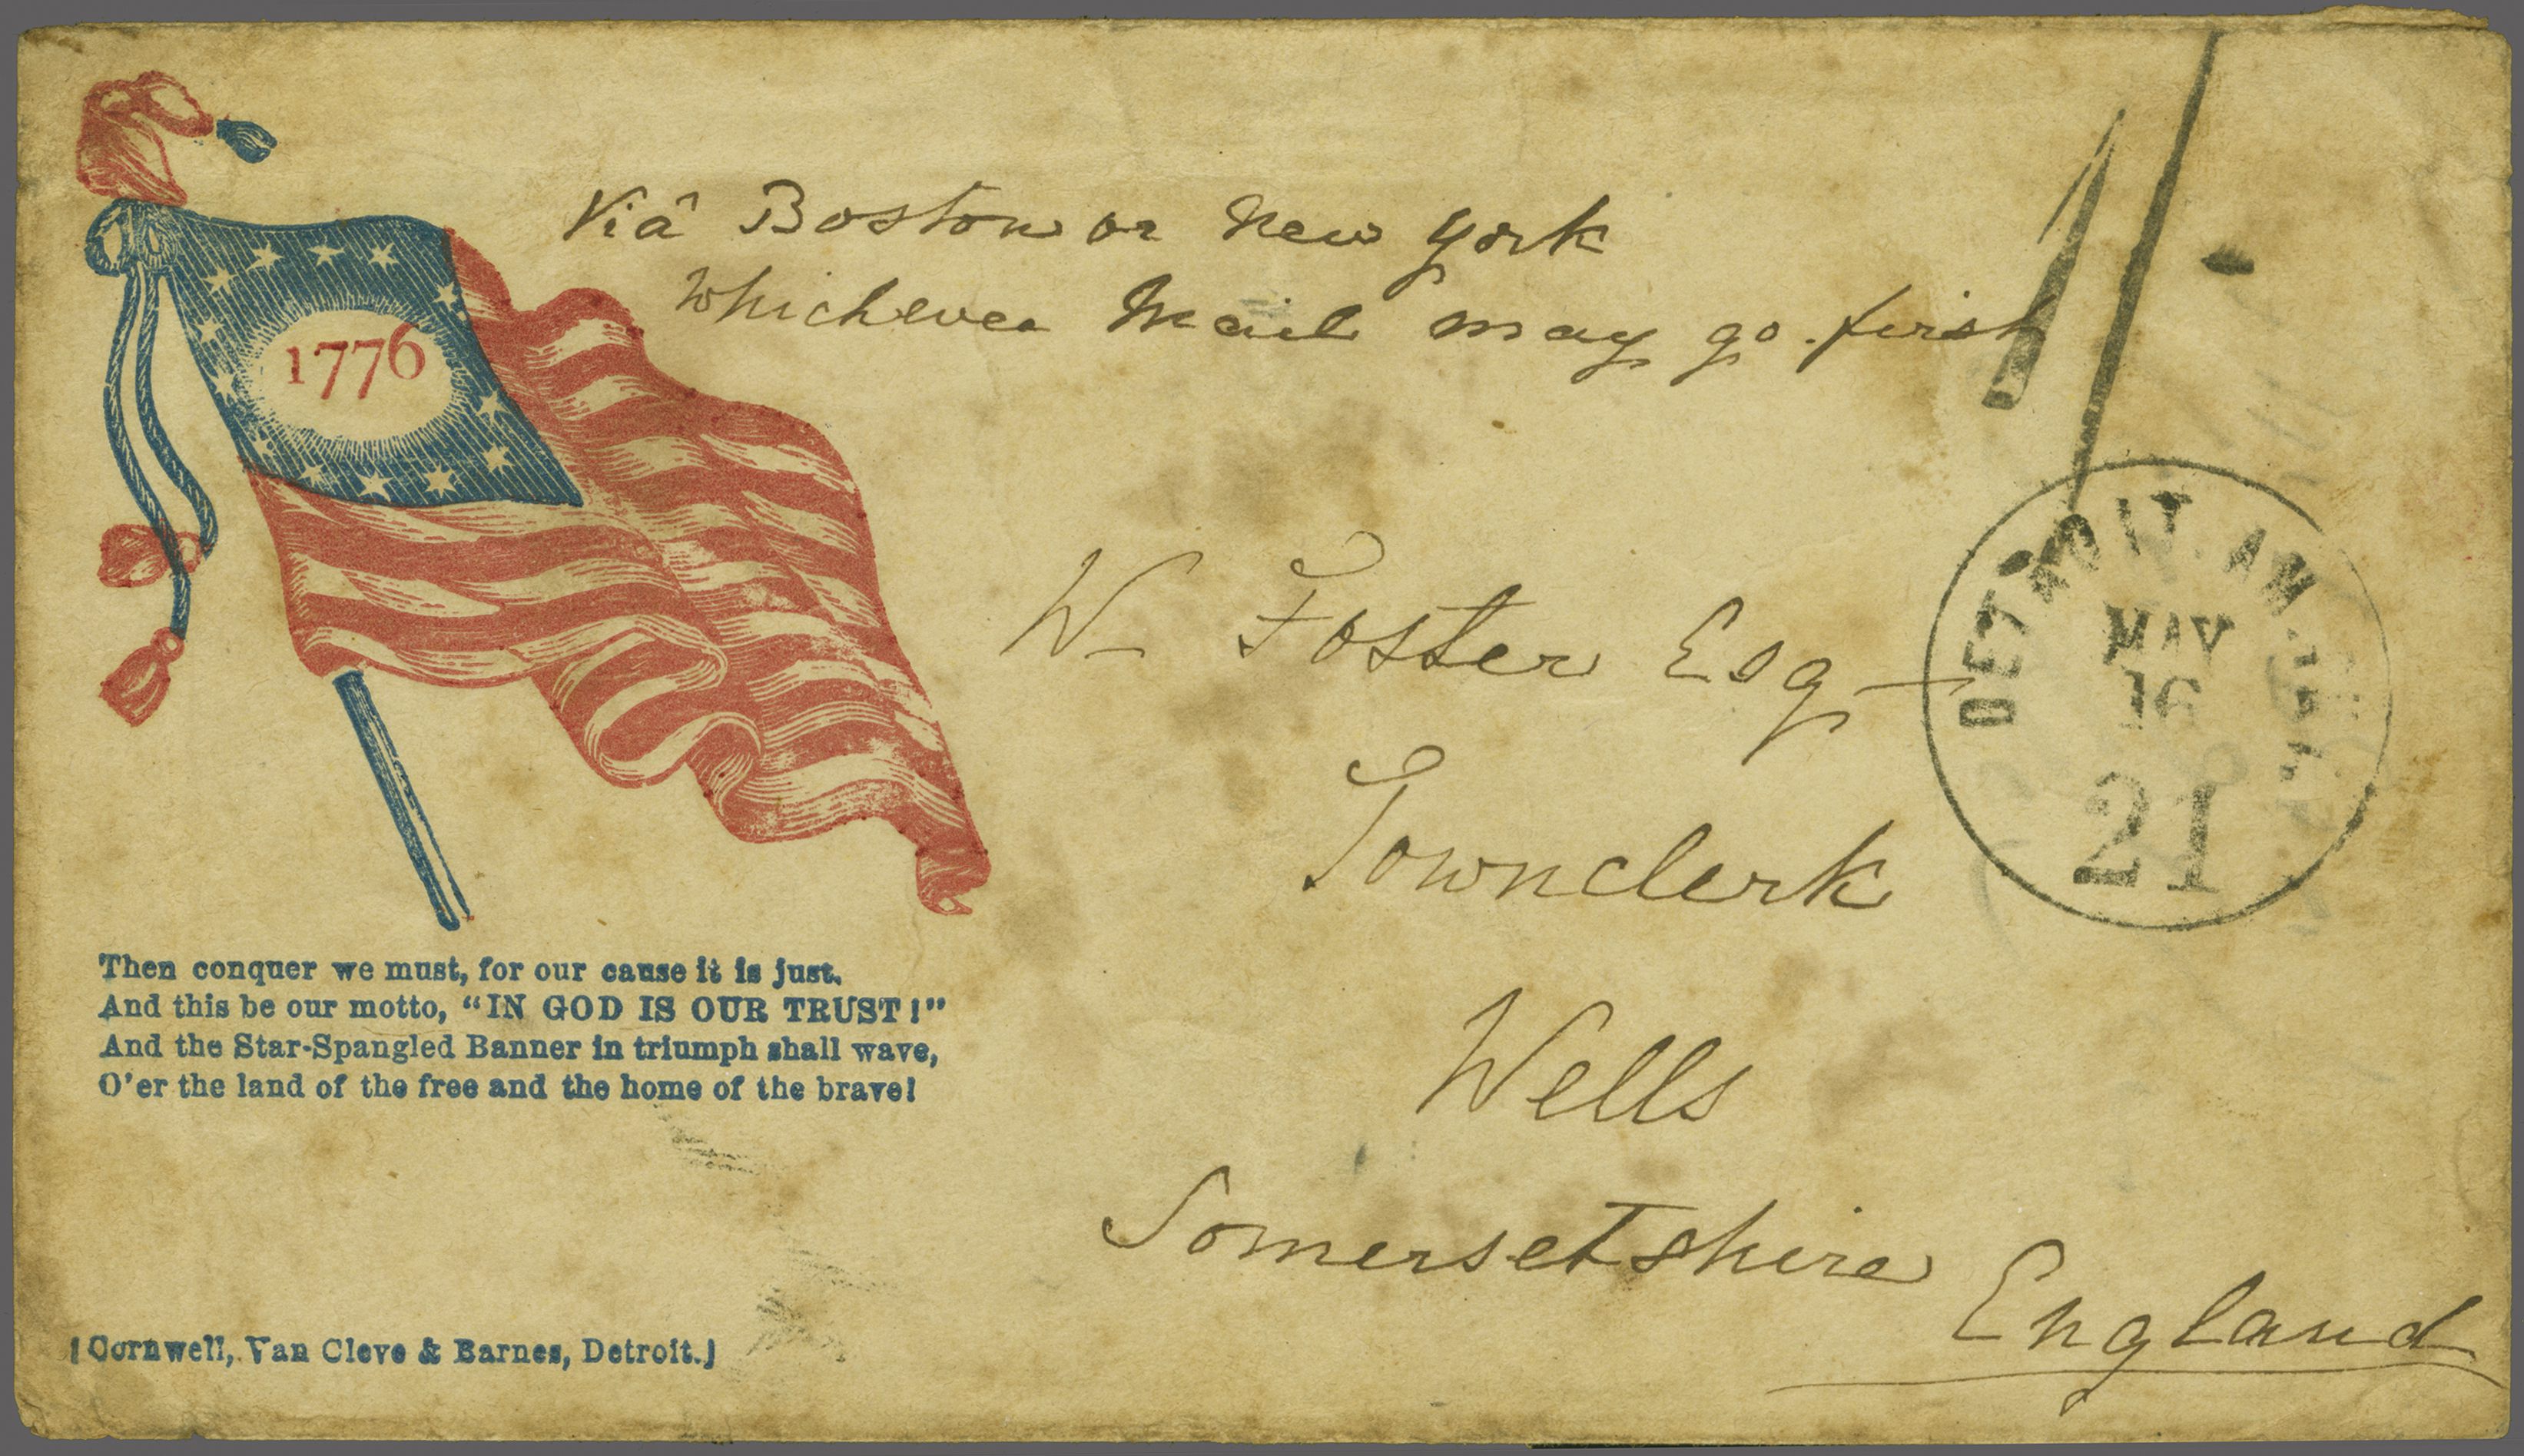 Viâ Boston or New York
Whichever Mail may go first
1/-
1776
W- Foster Esq-
Townclerk
Wells
Somersetshire
England
DETROIT AM.
MAY
16
21
Then conquer we must, for our cause it is just.
And this be our motto, "IN GOD IS OUR TRUST!"
And the Star-Spangled Banner in triumph shall wave,
O'er the land of the free and the home of the brave!
[Cornwell, Van Cleve & Barnes, Detroit.]